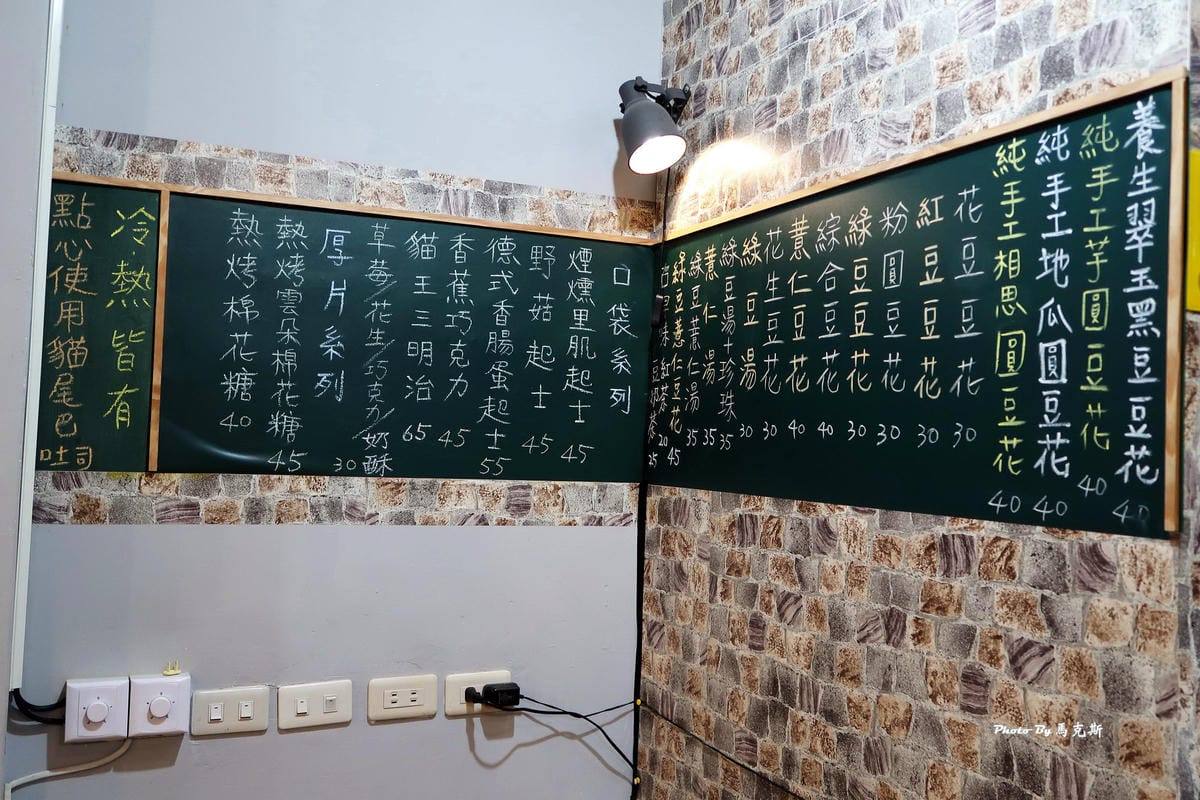 養生翠玉黑豆豆花 40
純手工芋圓豆花 40
純手工地瓜圓豆花 40
純手工相思圓豆花 40
花豆豆花 30
紅豆豆花 30
粉圓豆花 30
綠豆豆花 30
綜合豆花 40
薏仁豆花 40
花生豆花 30
綠豆湯 30
綠豆湯+珍珠 35
薏仁湯 35
綠豆薏仁湯 35
綠豆薏仁豆花 45
紅茶 20
25
口袋系列
煙燻里肌起士 45
野菇起士 45
德式香腸蛋起士 55
香蕉巧克力 45
貓王三明治 65
草莓/花生/巧克力/奶酥 30
厚片系列
熱烤雲朵棉花糖 45
熱烤棉花糖 40
冷熱皆有
點心使用貓尾巴吐司
Photo By 馬克斯